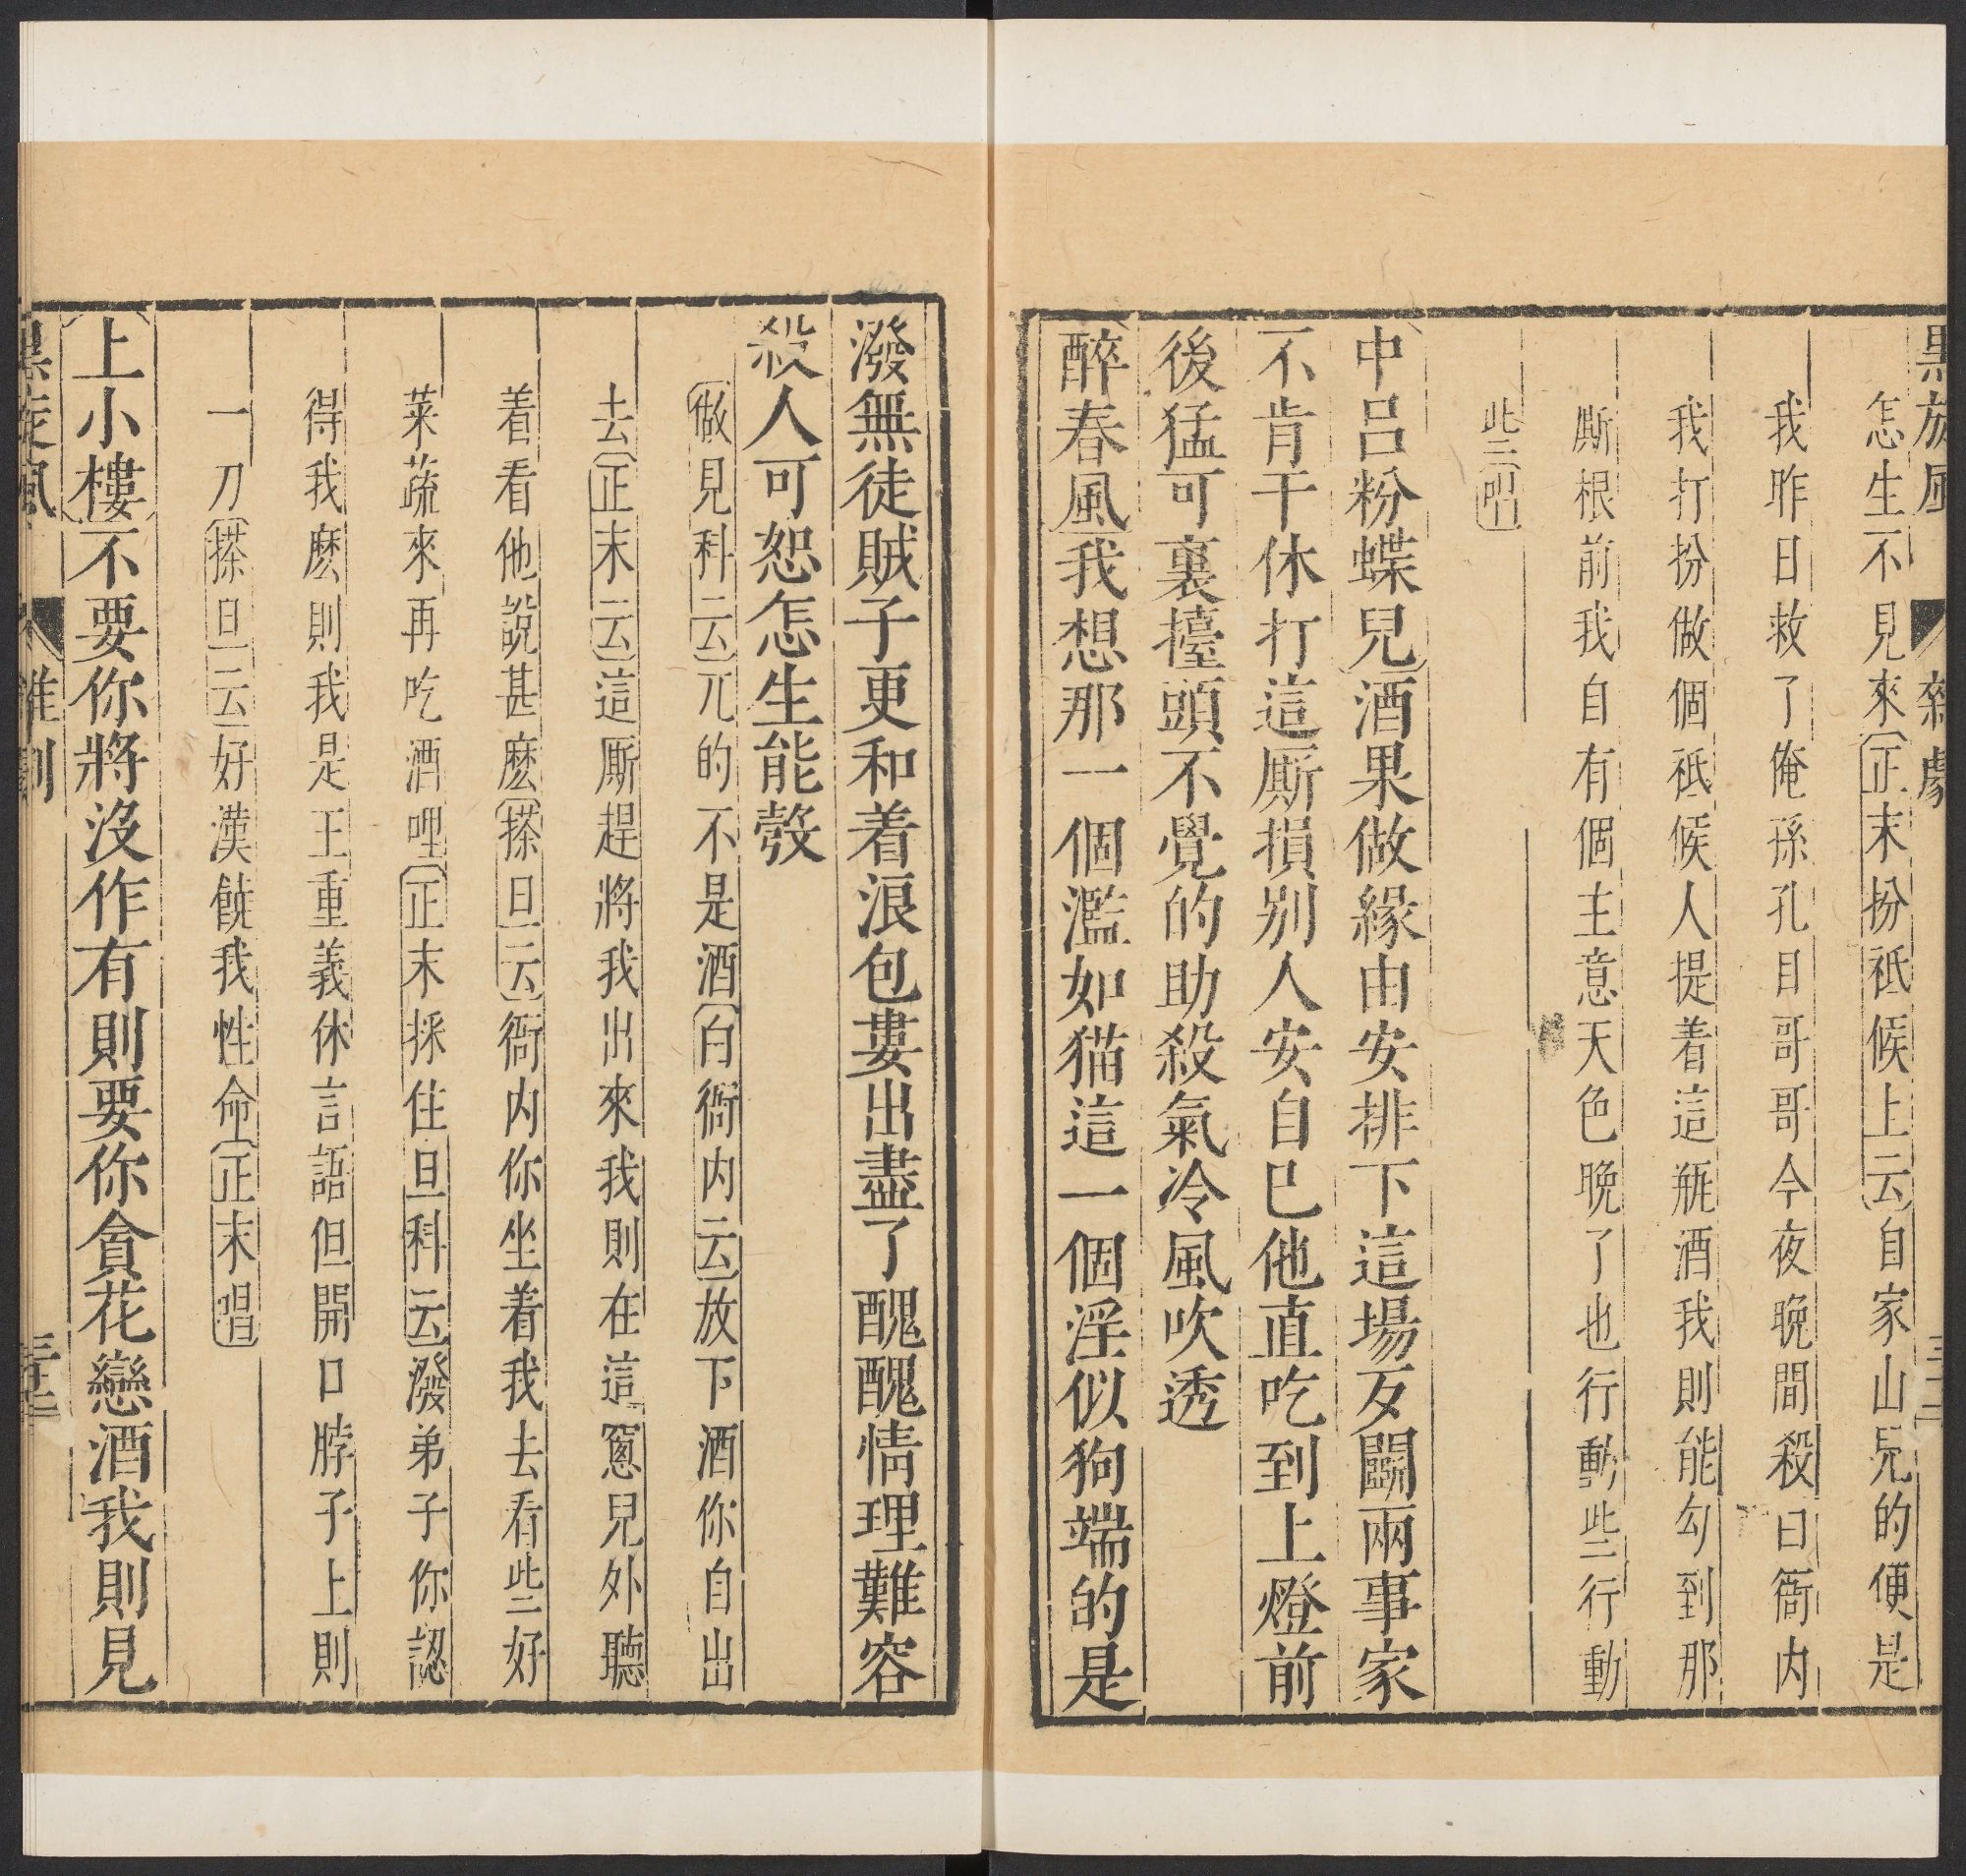 黑旋風 雜劇
怎生不見來正末扮祗候上云自家山兒的便是
我昨日救了俺孫孔目哥哥今夜晚間殺白衙內
我打扮做個祗候人提着這瓶酒我則能勾到那
厮根前我自有個主意天色晚了也行動些行動
些唱
中呂粉蝶兒酒果做緣由安排下這場歹鬬兩事家
不肯干休打這厮損別人安自已他直吃到上燈前
後猛可裏擡頭不覺的助殺氣冷風吹透
醉春風我想那一個濫如猫這一個淫似狗端的是
潑無徒賊子更和着浪包婁出盡了醜醜情理難容
殺人可恕怎生能彀
做見科云兀的不是酒白衙內云放下酒你自出
去正末云這厮趕將我出來我則在這窻兒外聽
着看他說甚麽搽旦云衙內你坐着我去看些好
菜蔬來再吃酒哩正末採住旦科云潑弟子你認
得我麽則我是王重義休言語但開口脖子上則
一刀搽旦云好漢饒我性命正末唱
上小樓不要你將沒作有則要你貪花戀酒我則見
黑旋風 雜劇